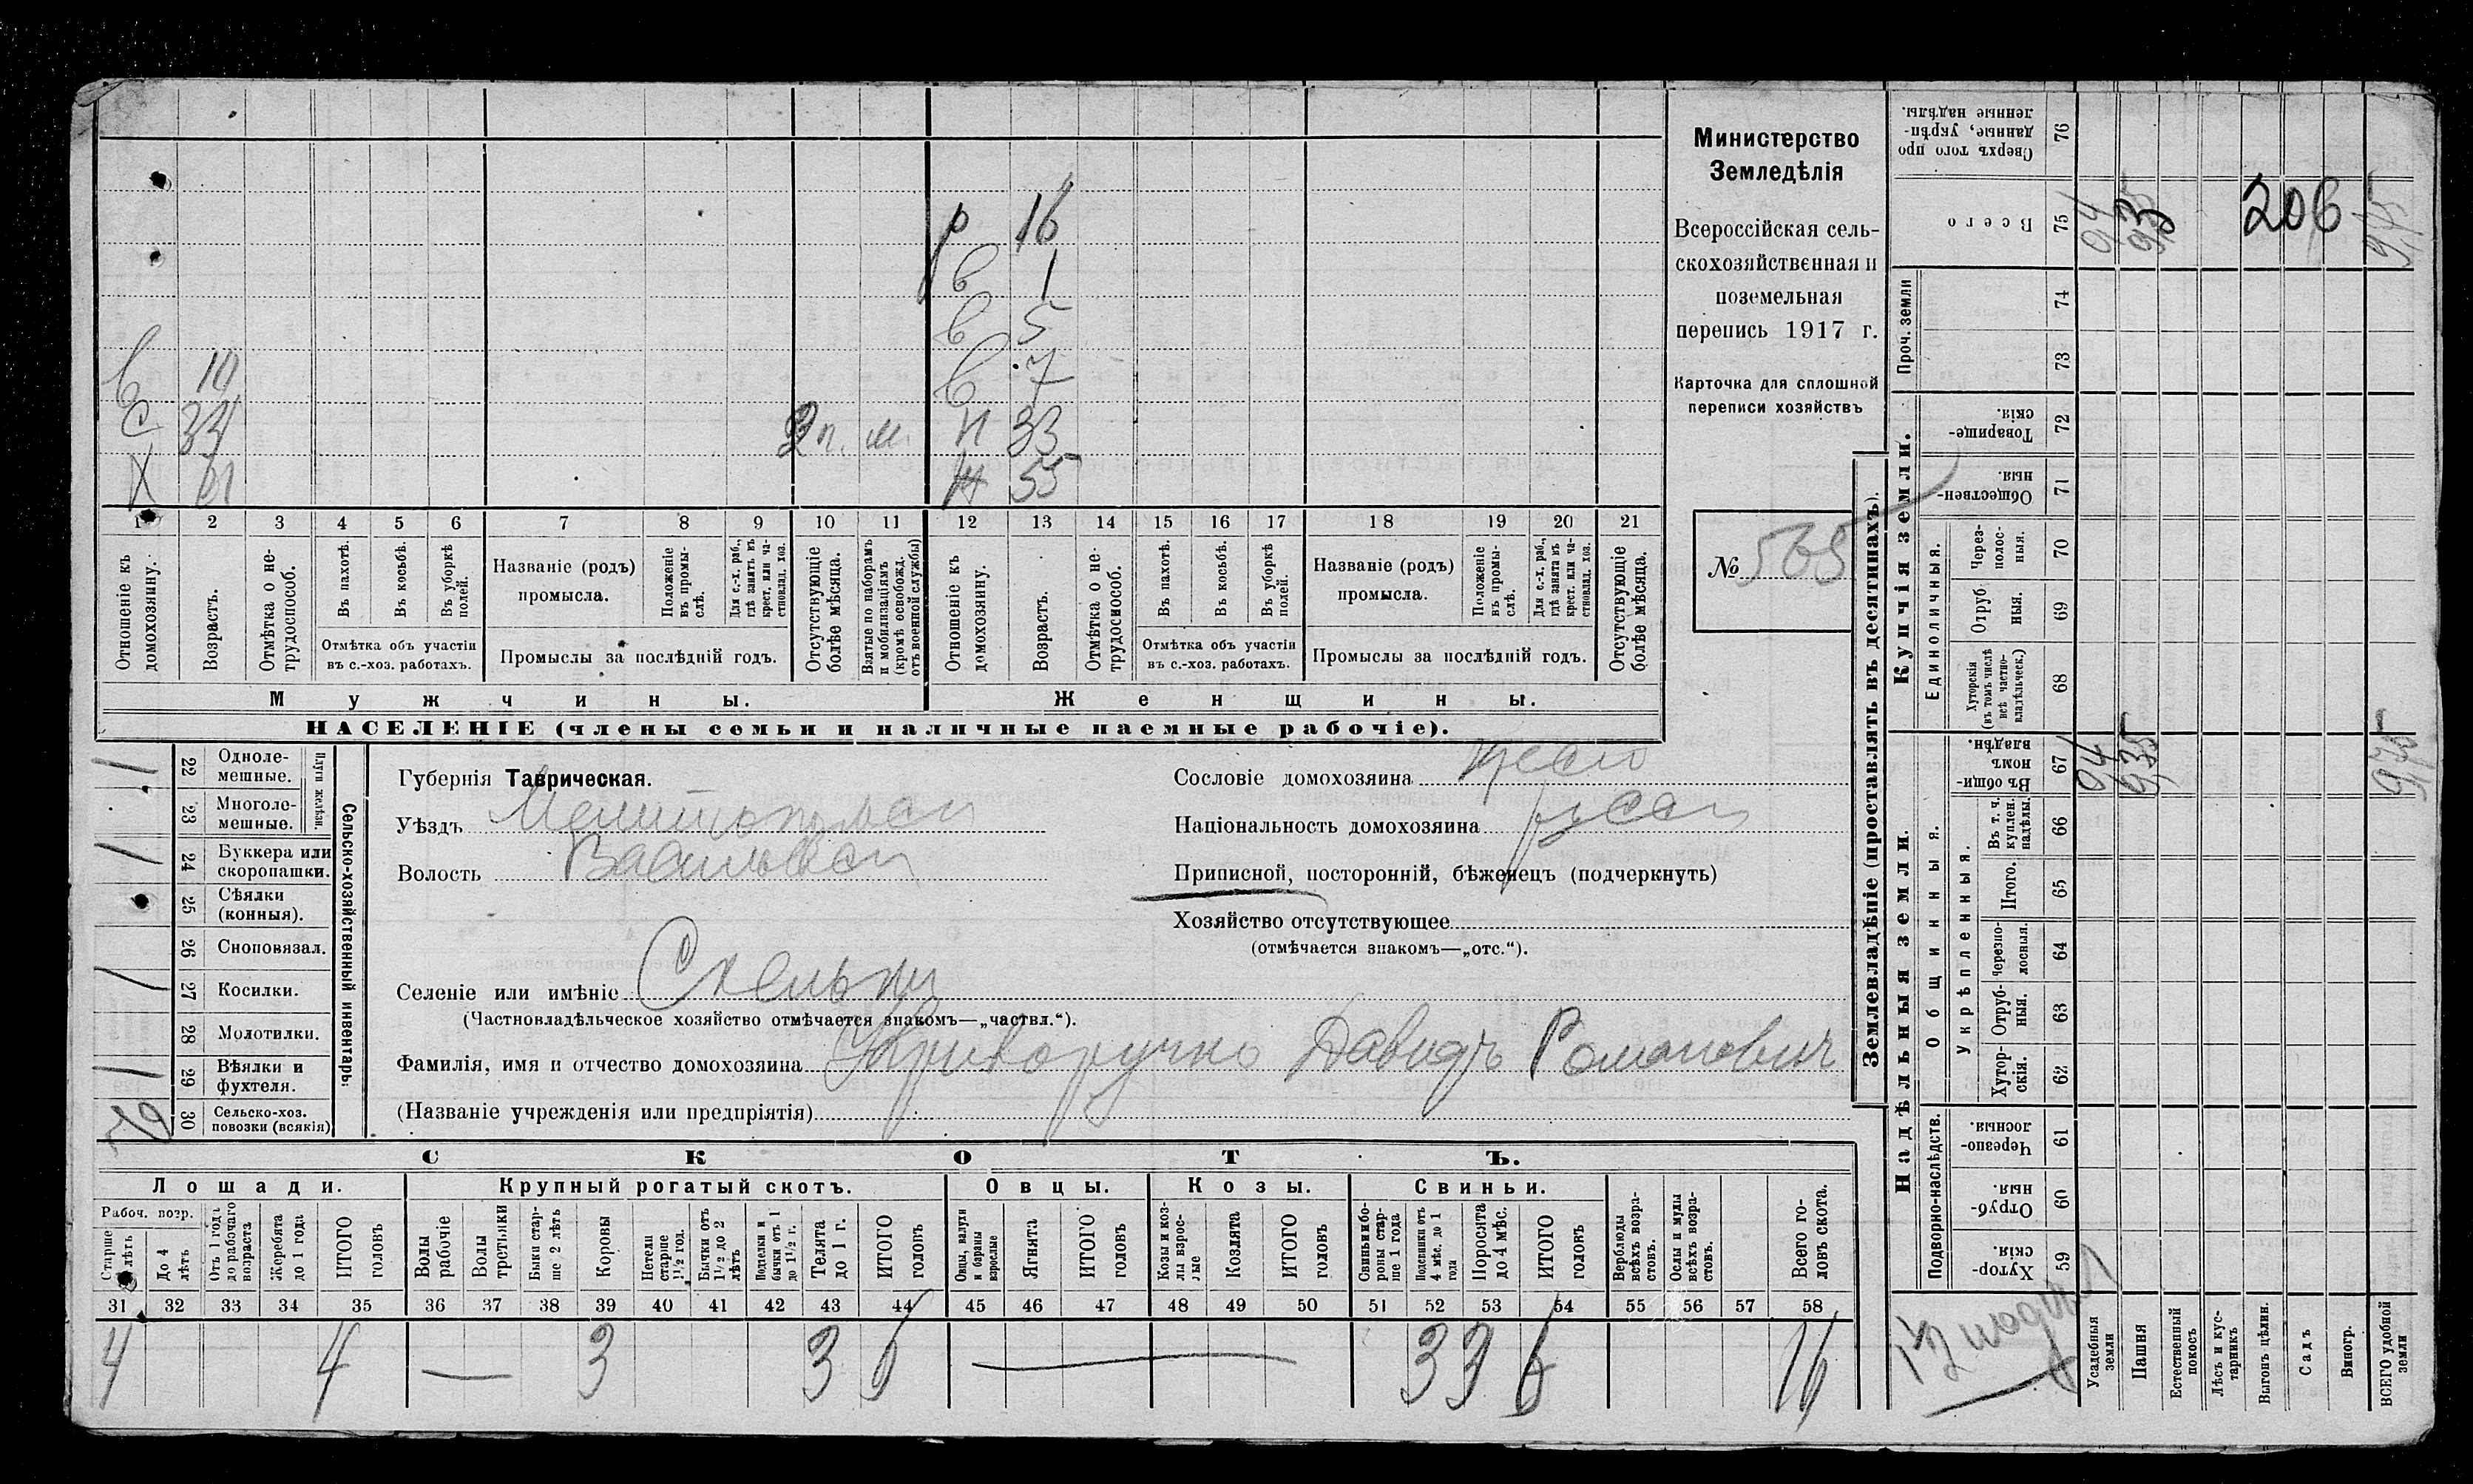 р 16
в 1
в 5
в 10 в 7
с 34 2 п. м. н 33
Х 61 ж 55
1 2 3 4 5 6 7 8 9 10 11 12 13 14 15 16 17 18 19 20 21
Отношеніе къ домохозяину.
Возрастъ.
Отмѣтка о не-трудоспособ.
Въ пахотѣ.
Въ косьбѣ.
Въ уборкѣ полей.
Отмѣтка объ участіи
въ с.-хоз. работахъ.
Названіе (родъ)
промысла.
Положеніе въ промы-слѣ.
Для с.-х. раб., гдѣ занятъ въ крест. или ча-стновлад. хоз.
Промыслы за послѣдній годъ.
Отсутствующіе болѣе мѣсяца.
Взятые по наборамъ и мобилизаціямъ (кромѣ освобожд. отъ военной службы)
Отношеніе къ домохозяину.
Возрастъ.
Отмѣтка о не-трудоспособ.
Въ пахотѣ.
Въ косьбѣ.
Въ уборкѣ полей.
Отмѣтка объ участіи
въ с.-хоз. работахъ.
Названіе (родъ)
промысла.
Положеніе въ промы-слѣ.
Для с.-х. раб., гдѣ занята въ крест. или ча-стновлад. хоз.
Промыслы за послѣдній годъ.
Отсутствующіе болѣе мѣсяца.
Мужчины. Женщины.
НАСЕЛЕНІЕ (члены семьи и наличные наемные рабочіе).
Министерство
Земледѣлія
Всероссійская сель-
скохозяйственная и
поземельная
перепись 1917 г.
Карточка для сплошной
переписи хозяйствъ
№ 565
Сельско-хозяйственный инвентарь:
Плуги желѣзн.
1 22 Одноле-мешные.
23 Многоле-мешные.
1 24 Буккера или скоропашки.
25 Сѣялки (конныя).
26 Сноповязал.
1 27 Косилки.
28 Молотилки.
1 29 Вѣялки и фухтеля.
2 30 Сельско-хоз. повозки (всякія)
Губернія Таврическая.
Уѣздъ Мелитопольск
Волость Васильевск
Селеніе или имѣніе Скельки
(Частновладѣльческое хозяйство отмѣчается знакомъ—„частвл.“).
Фамилія, имя и отчество домохозяина Криворучко Давидъ Романович
(Названіе учрежденія или предпріятія)
Сословіе домохозяина крест
Національность домохозяина русск
Приписной, посторонній, бѣженецъ (подчеркнуть)
Хозяйство отсутствующее
(отмѣчается знакомъ—„отс.“).
СКОТЪ.
Лошади. Крупный рогатый скотъ. Овцы. Козы. Свиньи.
Рабоч. возр.
Старше 4 лѣтъ
До 4 лѣтъ
Отъ 1 года до рабочаго возраста
Жеребята до 1 года
ИТОГО головъ
Волы рабочіе
Волы третьяки
Быки стар-ше 2 лѣтъ
Коровы
Нетели старше 1½ год.
Бычки отъ 1½ до 2 лѣтъ
Подтелки и бычки отъ 1 до 1½ г.
Телята до 1 г.
ИТОГО головъ
Овцы, валухи и бараны взрослые
Ягнята
ИТОГО головъ
Козы и коз-лы взрос-лые
Козлята
ИТОГО головъ
Свиньи и бо-ровы стар-ше 1 года
Подсвинки отъ 4 мѣс. до 1 года
Поросята до 4 мѣс.
ИТОГО головъ
Верблюды всѣхъ возра-стовъ.
Ослы и мулы всѣхъ возра-стовъ.
Всего го-ловъ скота.
31 32 33 34 35 36 37 38 39 40 41 42 43 44 45 46 47 48 49 50 51 52 53 54 55 56 57 58
4 4 — 3 3 6 — 3 3 6 16
Землевладѣніе (проставлять въ десятинахъ).
Надѣльныя земли. Купчія земли. Проч. земли
Подворно-наслѣдств. Общинныя. Укрѣпленныя. Единоличныя.
Хутор-скія. 59
Отруб-ныя. 60
Черезпо-лосныя. 61
Хутор-скія. 62
Отруб-ныя. 63
Черезпо-лосныя. 64
Итого. 65
Въ т. ч. куплен. надѣлы. 66
Въ общи-номъ владѣн. 67
0,4 9,35 9,75
Хуторскія (въ томъ числѣ всѣ частно-владѣльческ.) 68
Отруб-ныя. 69
Через-полос-ныя. 70
Обществен-ныя. 71
Товарище-скія. 72
73 74
Всего 75
0,4 9,35 206 9,75
Сверхъ того про-данные, укрѣп-ленные надѣлы. 76
Усадебныя земли
Пашня
Естественный покосъ
Лѣсъ и кус-тарникъ
Выгонъ цѣлин.
Садъ
Виногр.
ВСЕГО удобной земли